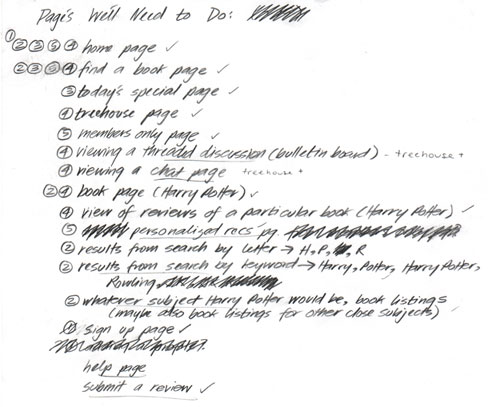 Pages We'll Need to Do:
①
② ③ ⑤ ④ home page ✓
② ③ ④ find a book page ✓
③ today's special page ✓
④ treehouse page ✓
⑤ members only page ✓
④ viewing a threaded discussion (bulletin board) - treehouse +
④ viewing a chat page treehouse +
② ④ book page (Harry Potter) ✓
④ view of reviews of a particular book (Harry Potter) ✓
⑤ personalized recs pg.
② results from search by letter → H, P, R
② results from search by keyword → Harry, Potter, Harry Potter,
Rowling
② whatever subject Harry Potter would be, book listings
(maybe also book listings for other close subjects) ✓
① sign up page ✓
help page
submit a review ✓